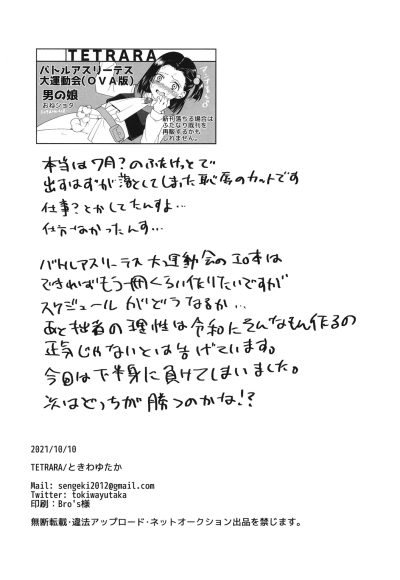 TETRARA
バトルアスリーテス
大運動会(OVA版)
男の娘
おねショタ
新刊落ちる場合は
ふたなり既刊を
再販するかも
しれません。
本当は7月?のふたけっとで
出すはずが落としてしまった恥辱のカットです
仕事?とかしてたんすよ…
仕方なかったんす…
バトルアスリーテス大運動会のエロ本は
できればもう一冊くらい作りたいですが
スケジュールがどうなるか…
あと拙者の理性は令和にそんなもん作るの
正気じゃないとは告げています。
今回は下半身に負けてしまいました。
次はどっちが勝つのかな!?
2021/10/10
TETRARA/ときわゆたか
Mail: sengeki2012@gmail.com
Twitter: tokiwayutaka
印刷：Bro's様
無断転載・違法アップロード・ネットオークション出品を禁じます。